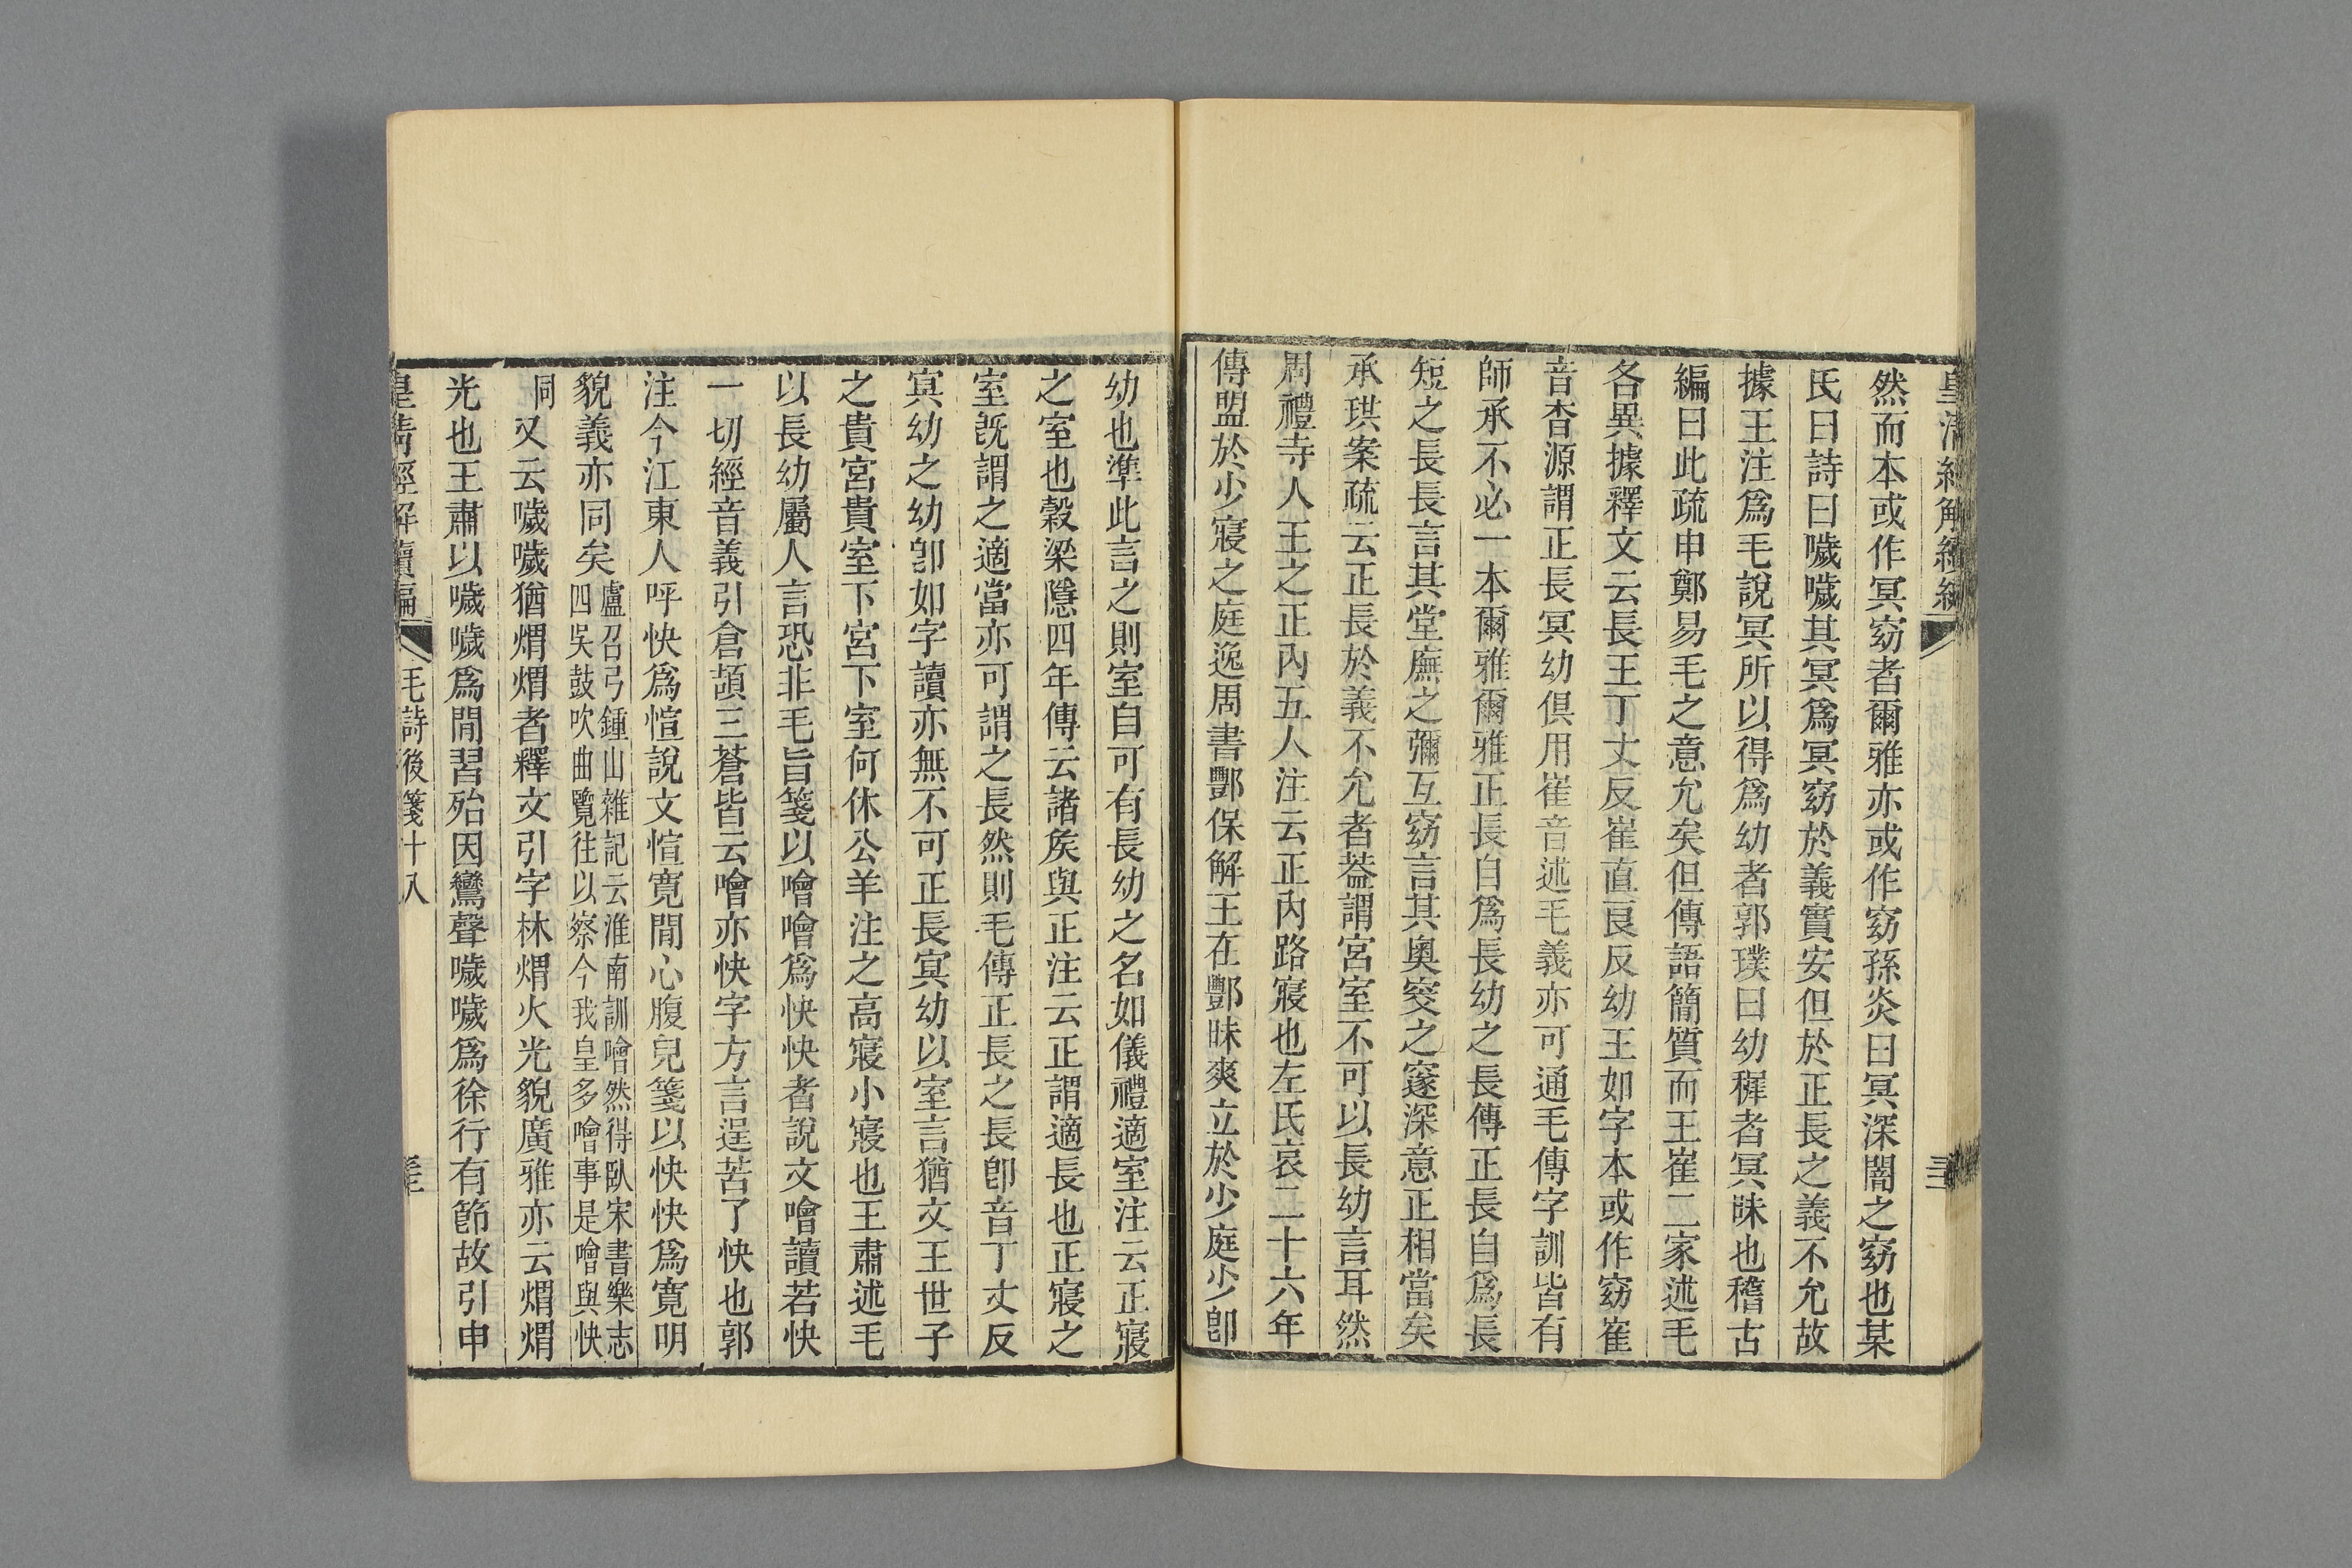 皇清經解續編
然而本或作冥窈者爾雅亦或作窈孫炎曰冥深闇之窈也某
氏曰詩曰噦噦其冥爲冥窈於義實安但於正長之義不允故
據王注爲毛說冥所以得爲幼者郭璞曰幼穉者冥昧也稽古
編曰此疏申鄭易毛之意允矣但傳語簡質而王崔二家述毛
各異據釋文云長王丁丈反崔直良反幼王如字本或作窈崔
音杳源謂正長冥幼俱用崔音述毛義亦可通毛傳字訓皆有
師承不必一本爾雅爾雅正長自爲長幼之長傳正長自爲長
短之長長言其堂廡之彌亙窈言其奧窔之窱深意正相當矣
承珙案疏云正長於義不允者葢謂宮室不可以長幼言耳然
周禮寺人王之正內五人注云正內路寢也左氏哀二十六年
傳盟於少寢之庭逸周書酆保解王在酆昧爽立於少庭少卽
幼也準此言之則室自可有長幼之名如儀禮適室注云正寢
之室也穀梁隱四年傳云諸矦與正注云正謂適長也正寢之
室旣謂之適當亦可謂之長然則毛傳正長之長卽音丁丈反
冥幼之幼卽如字讀亦無不可正長冥幼以室言猶文王世子
之貴宮貴室下宮下室何休公羊注之高寢小寢也王肅述毛
以長幼屬人言恐非毛旨箋以噲噲爲快快者說文噲讀若快
一切經音義引倉頡三蒼皆云噲亦快字方言逞苦了快也郭
注今江東人呼快爲愃說文愃寬閒心腹皃箋以快快爲寬明
貌義亦同矣盧召弓鍾山雜記云淮南訓噲然得臥宋書樂志
四吳鼓吹曲覽往以察今我皇多噲事是噲與快
同又云噦噦猶煟煟者釋文引字林煟火光貌廣雅亦云煟煟
光也王肅以噦噦爲閒習殆因鸞聲噦噦爲徐行有節故引申
皇清經解續編
毛詩後箋十八